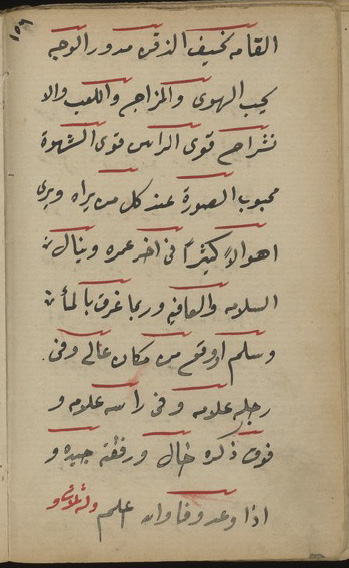 ١٥٩
القامه خفيف الذقن مدور الوجه
يحب الهوى والمزاح واللعب والا
نشراح قوى الراس قوى الشهوة
محبوب الصورة عند كل من يراه ويرى
اهوالاً كثيرًا فى اخر عمره وينال
السلامه والعافيه وربما غرق بالماء
وسلم او وقع من مكان عالى وفى
رجله علامه وفى راسه علامه و
فوق ذكره خال ورفقته جيده و
اذا وعد وفا وان علم وله ثلاث و